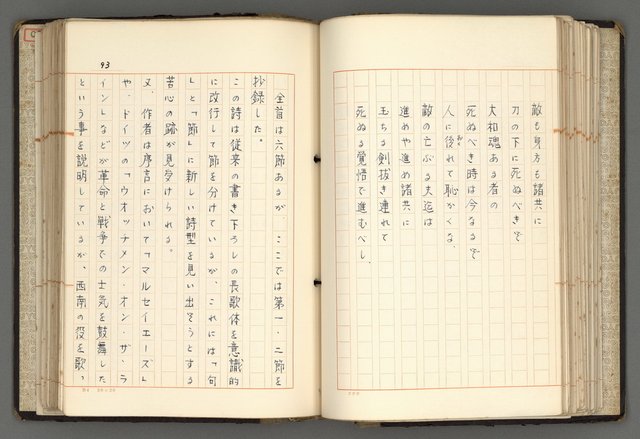 敵も身方も諸共に
刀の下に死ぬべきぞ
大和魂ある者の
死ぬべき時は今なるぞ
人に後れて恥かくな
敵の亡ぶる夫迄は
進めや進め諸共に
玉ちる剣抜き連れて
死ぬる覚悟で進むべし。
93
全首は六節あるが、ここでは第一・二節を
抄録した。
この詩は従来の書き下ろしの長歌体を意識的
に改行して節を分けているが、これには「句
」と「節」に新しい詩型を見い出そうとする
苦心の跡が見受けられる。
又、作者は序言において「マルセイエーズ」
や、ドイツの「ウオッチメン・オン・ザ・ラ
イン」などが革命と戦争での士気を鼓舞した
という事を説明しているが、西南の役を歌っ